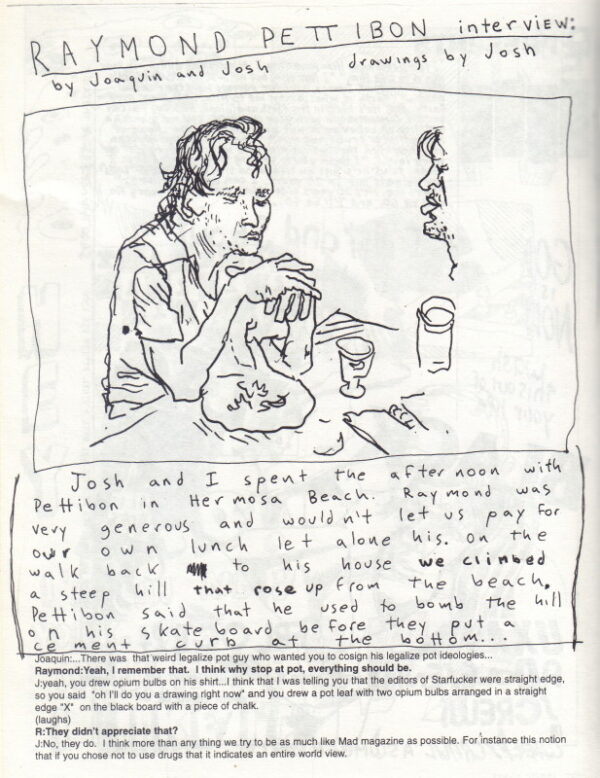 RAYMOND PETTIBON interview:
by Joaquin and Josh drawings by Josh
Josh and I spent the afternoon with
Pettibon in Hermosa Beach. Raymond was
very generous and wouldn't let us pay for
our own lunch let alone his. on the
walk back to his house we climbed
a steep hill that rose up from the beach.
Pettibon said that he used to bomb the hill
on his skateboard before they put a
cement curb at the bottom...
Joaquin:...There was that weird legalize pot guy who wanted you to cosign his legalize pot ideologies...
Raymond:Yeah, I remember that. I think why stop at pot, everything should be.
J:yeah, you drew opium bulbs on his shirt...I think that I was telling you that the editors of Starfucker were straight edge,
so you said "oh I'll do you a drawing right now" and you drew a pot leaf with two opium bulbs arranged in a straight
edge "X" on the black board with a piece of chalk.
(laughs)
R:They didn't appreciate that?
J:No, they do. I think more than any thing we try to be as much like Mad magazine as possible. For instance this notion
that if you chose not to use drugs that it indicates an entire world view.